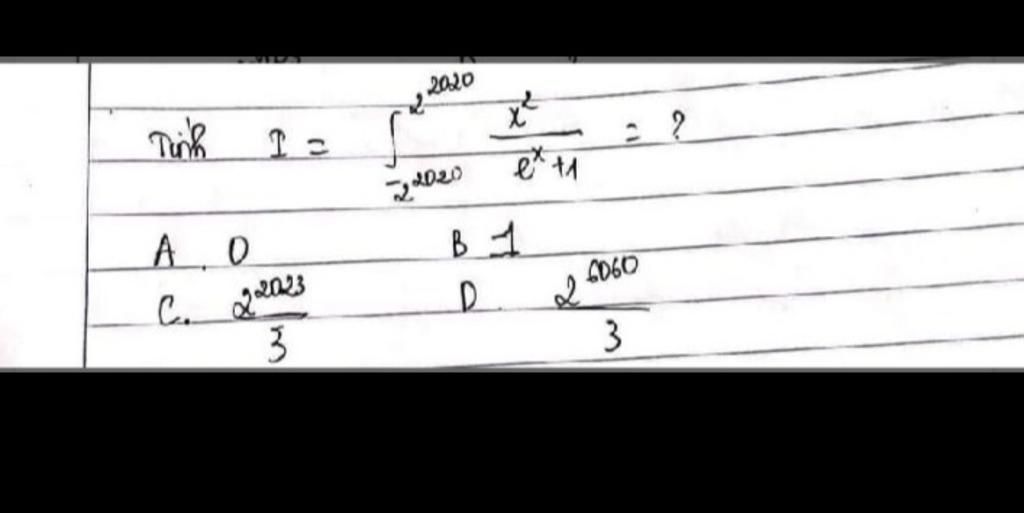 Tính I = ∫_{-2^{2020}}^{2^{2020}} \frac{x^2}{e^x+1} = ?
A. 0 B 1
C. \frac{2^{2023}}{3} D. \frac{2^{6060}}{3}